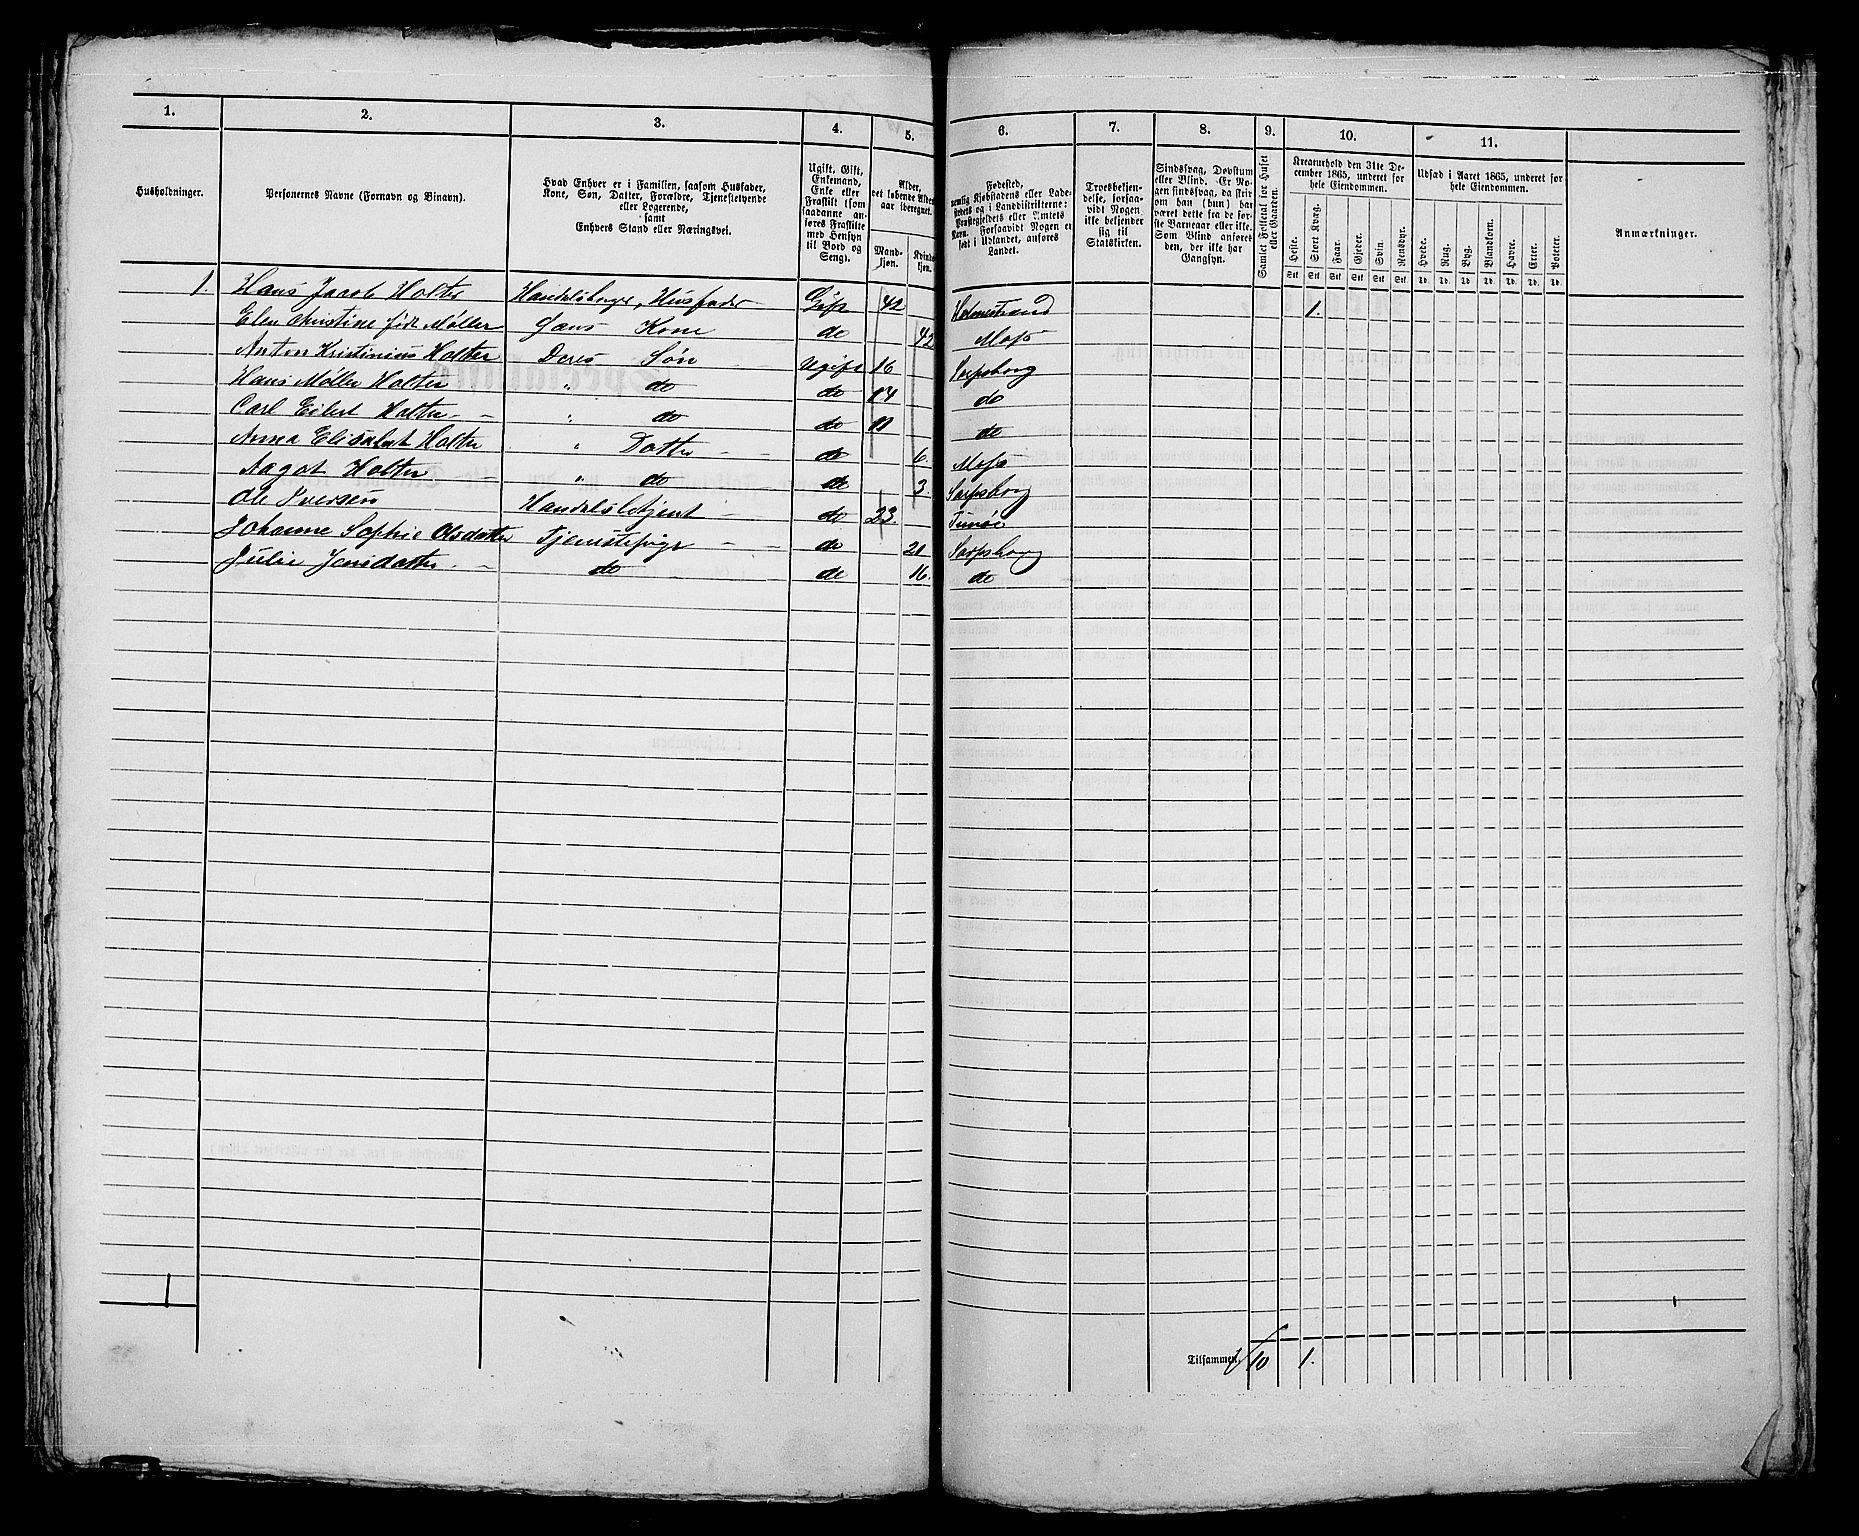 1. 2. 3. 4. 5. 6. 7. 8. 9. 10. 11.
Husholdninger.
Personernes Navne (Fornavn og Binavn).
Hvad Enhver er i Familien, saasom Husfader,
Kone, Søn, Datter, Forældre, Tjenestetyende
eller Logerende,
samt
Enhvers Stand eller Næringsvei.
Ugift, Gift,
Enkemand,
Enke eller
Fraskilt (som
saadanne an-
føres Fraskilte
med Hensyn
til Bord og
Seng).
Alder,
det løbende Alders-
aar iberegnet.
Mand-
kjøn.
Kvind-
kjøn.
Fødested,
nemlig Kjøbstadens eller Lade-
stedets og i Landdistrikterne:
Præstegjeldets eller Amtets
Navn. Forsaavidt Nogen er
født i Udlandet, anføres
Landet.
Troesbekjen-
delse, forsaa-
vidt Nogen
ikke bekjender
sig til
Statskirken.
Sindssvag, Døvstum
eller Blind. Er No-
gen sindssvag, da skri-
ves om han (hun) har
været dette fra de før-
ste Barneaar eller ikke.
Som Blind anføres
den, der ikke har
Gangsyn.
Samlet Folketal for Huset
eller Gaarden.
Kreaturhold den 31te De-
cember 1865, underet for
hele Eiendommen.
Heste. Stort Kvæg. Faar. Gjeder. Svin. Rensdyr.
Stk Stk Stk Stk Stk Stk
Udsæd i Aaret 1865, underet for
hele Eiendommen.
Hvede. Rug. Byg. Blandkorn. Havre. Erter. Poteter.
Td. Td. Td. Td. Td. Td. Td.
Anmærkninger.
1. Hans Jacob Holter Handelsborger, Husfader Gift 42 Holmestrand 1.
Elen Christine født Møller Hans Kone do 42 Moss
Anton Kristinius Holter Deres Søn Ugift 16 Sarpsborg
Hans Møller Holter " do do 14 do
Carl Eilert Holter " do do 11 do
Anna Elisabet Holter " Datter do 6. Moss
Aagot Holter " do do 3. Sarpsborg
Ole Iversen Handelsbetjent do 23. Tunøe
Johanne Sophie Olsdatter Tjenestepige do 21 Sarpsborg
Julie Jensdatter do do 16. do
1
Tilsammen. 1/10 1.